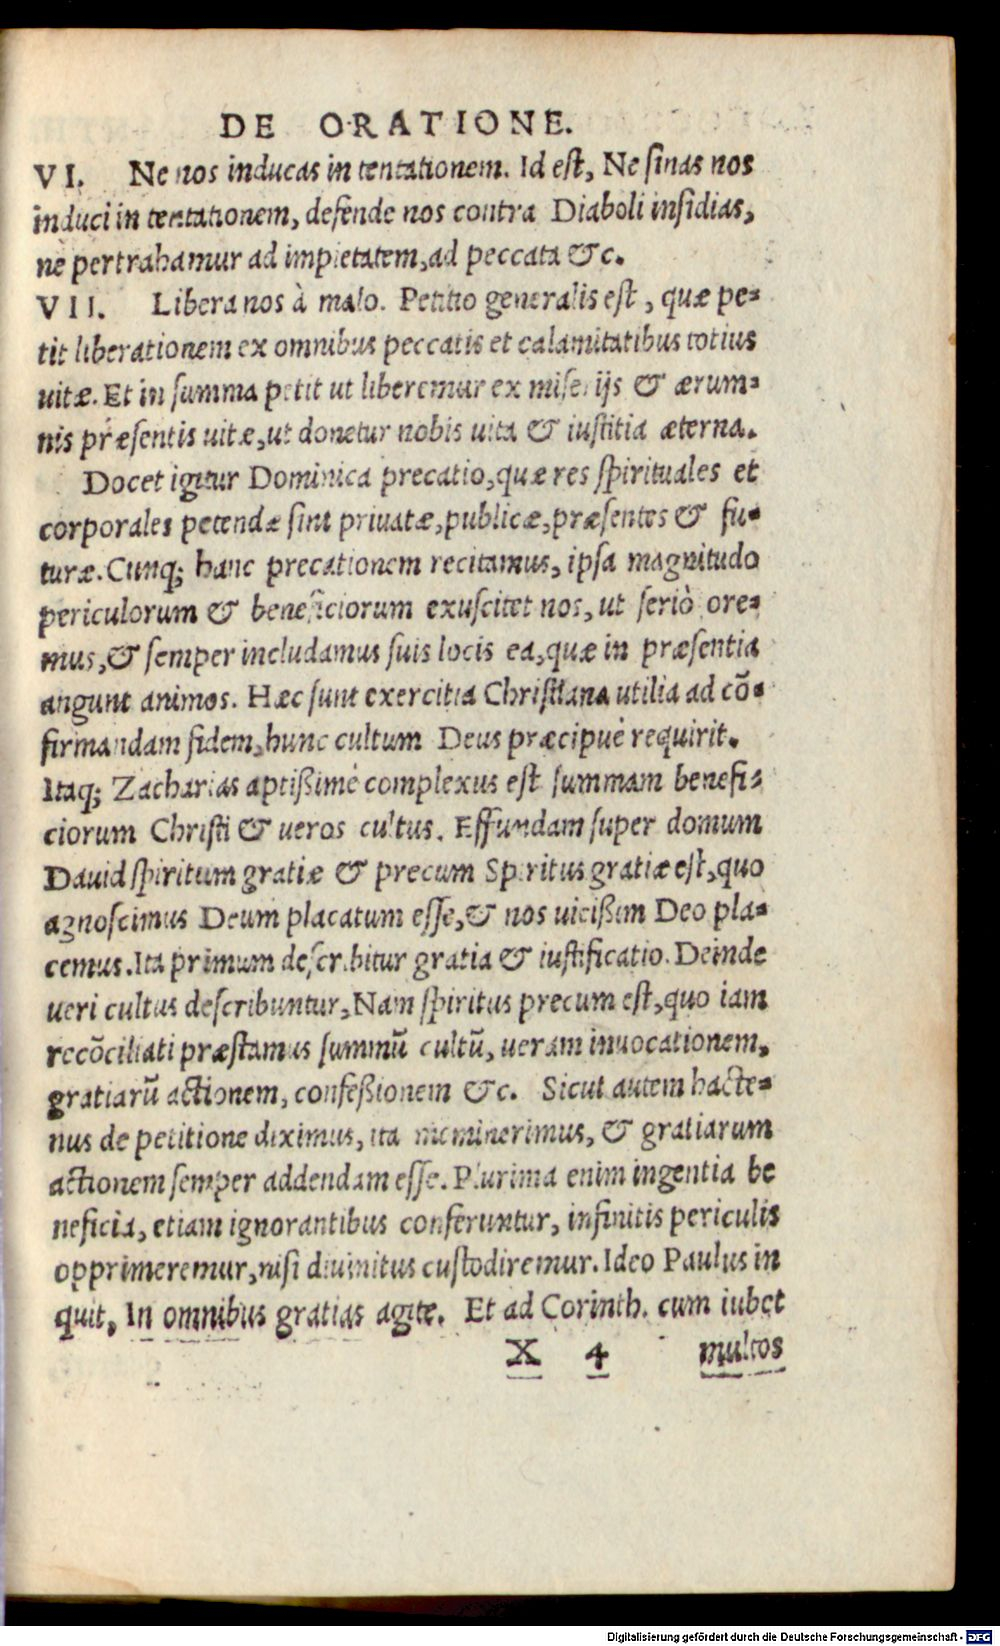 DE ORATIONE.
VI. Ne nos inducas in tentationem. Id est, Ne sinas nos
induci in tentationem, defende nos contra Diaboli insidias,
nè pertrahamur ad impietatem, ad peccata &c.
VII. Libera nos à malo. Petitio generalis est, quæ pe-
tit liberationem ex omnibus peccatis et calamitatibus totius
uitæ. Et in summa petit ut liberemur ex miserijs & ærum-
nis præsentis uitæ, ut donetur nobis uita & iustitia æterna.
Docet igitur Dominica precatio, quæ res spirituales et
corporales petendæ sint priuatæ, publicæ, præsentes & fu-
turæ. Cunq; hanc precationem recitamus, ipsa magnitudo
periculorum & beneficiorum exuscitet nos, ut seriò ore-
mus, & semper includamus suis locis ea, quæ in præsentia
angunt animos. Hæc sunt exercitia Christiana utilia ad cõ-
firmandam fidem, hunc cultum Deus præcipuè requirit.
Itaq; Zacharias aptißimè complexus est summam benefi-
ciorum Christi & ueros cultus. Effundam super domum
Dauid spiritum gratiæ & precum Spiritus gratiæ est, quo
agnoscimus Deum placatum esse, & nos uicißim Deo pla-
cemus. Ita primum describitur gratia & iustificatio. Deinde
ueri cultus describuntur, Nam spiritus precum est, quo iam
recõciliati præstamus summũ cultũ, ueram inuocationem,
gratiarũ actionem, confeßionem &c. Sicut autem hacte-
nus de petitione diximus, ita meminerimus, & gratiarum
actionem semper addendam esse. Plurima enim ingentia be
neficia, etiam ignorantibus conferuntur, infinitis periculis
opprimeremur, nisi diuinitus custodiremur. Ideo Paulus in
quit, In omnibus gratias agite. Et ad Corinth. cum iubet
X 4 multos
Digitalisierung gefördert durch die Deutsche Forschungsgemeinschaft - DFG